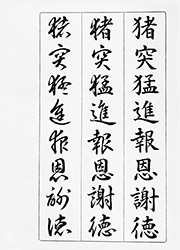 猪突猛進報恩謝徳
猪突猛進報恩謝徳
猪突猛進報恩謝徳